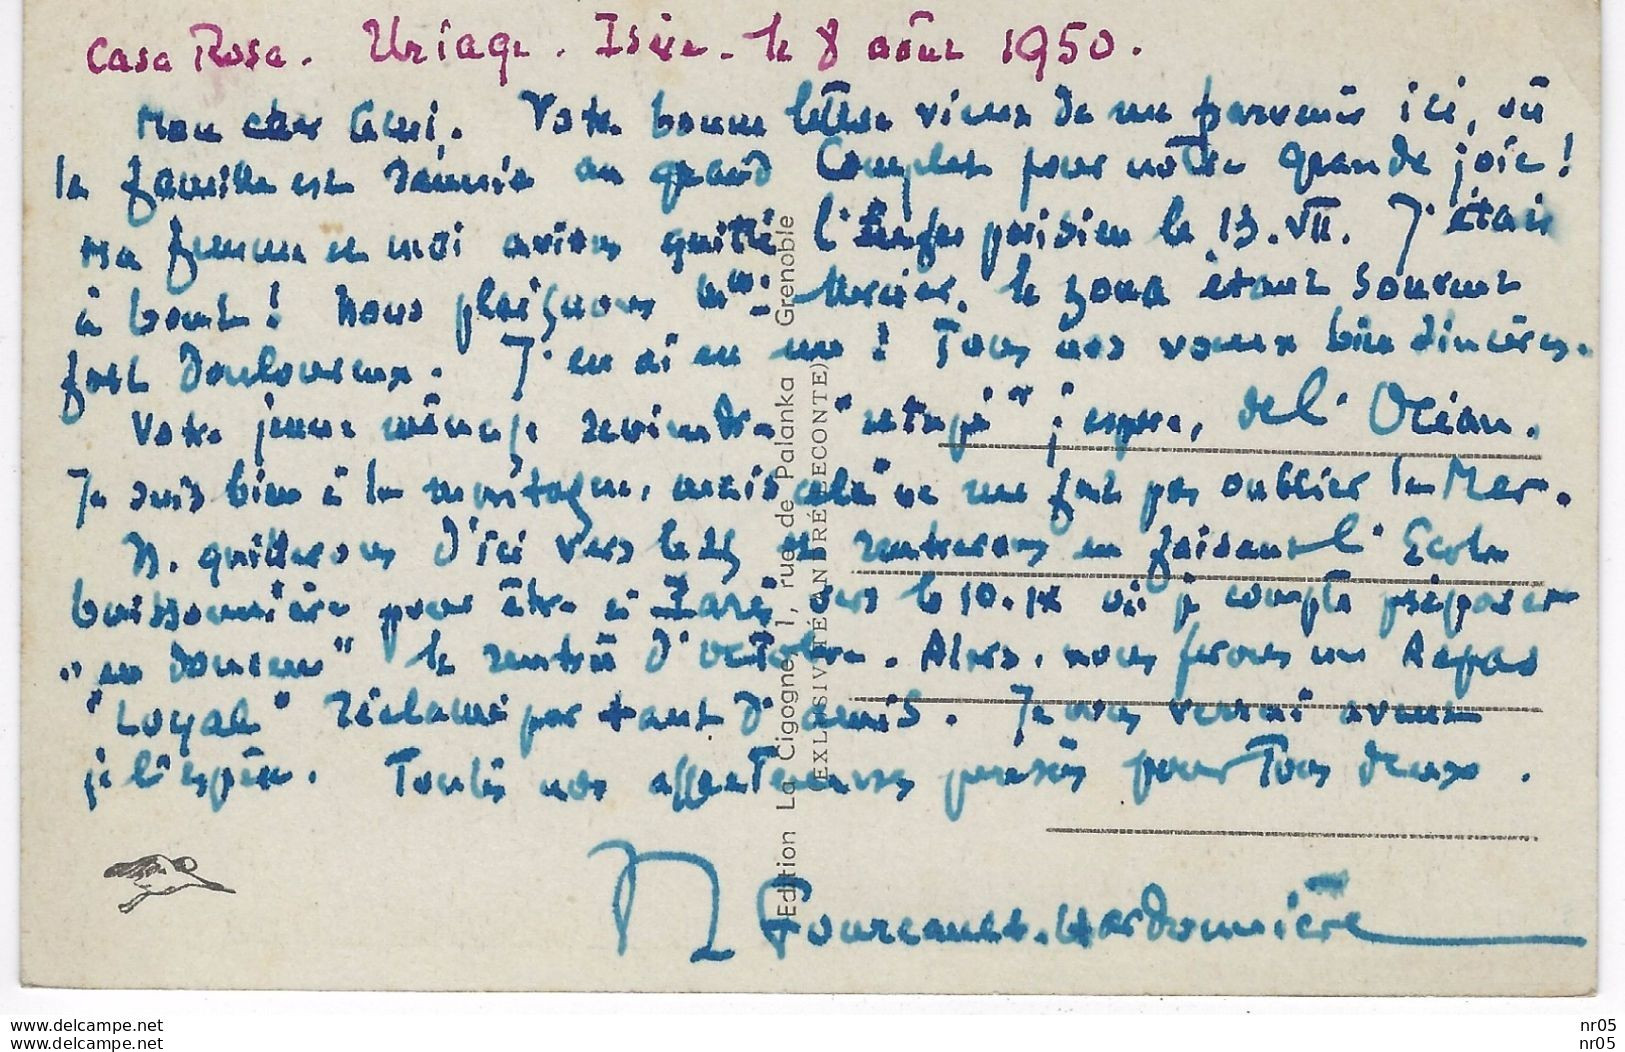 Casa Rosa. Uriage. Isère. le 8 août 1950.
Mon cher Ami. Votre bonne lettre vient de me parvenir ici, où
la famille est réunie au grand complet pour notre grande joie!
Ma femme et moi avions quitté l'Enfer parisien le 13.VII. J'étais
à bout! Nous plaignons Mme Mercier, le zona étant souvent
fort douloureux. J'en ai eu un! Tous nos vœux bien sincères.
Votre jeune ménage reviendra j'espère, de l'Océan.
Je suis bien à la montagne, mais cela ne me fait pas oublier la Mer.
N. quitterons d'ici vers le et rentrerons en faisant l'Ecole
buissonnière pour être à Paris vers le 10.IX où je compte préparer
"en douceur" la rentrée d'octobre. Alors, nous ferons un Repas
"Loyal" réclamé par tant d'amis. Je vous verrai avant
je l'espère. Toutes nos affectueuses pensées pour Tous deux.
Fourcault-
Edition La Cigogne, 1, rue de Palanka Grenoble
(EXCLUSIVITÉ ANDRÉ LECONTE)
www.delcampe.net
www.delcampe.net
nr05
nr05